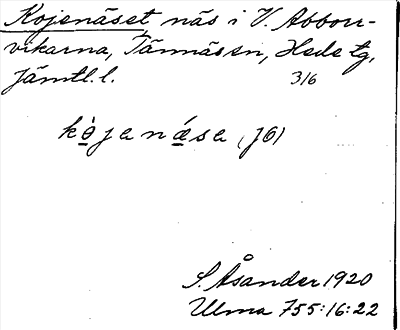 Kojenäset näs i V. Abborr-
vikarna, Tännäs sn, Hede tg,
Jämtl. l.
3/6
kò̱jenǽ̱sa (J6)
S. Åsander 1920
Ulma 755:16:22